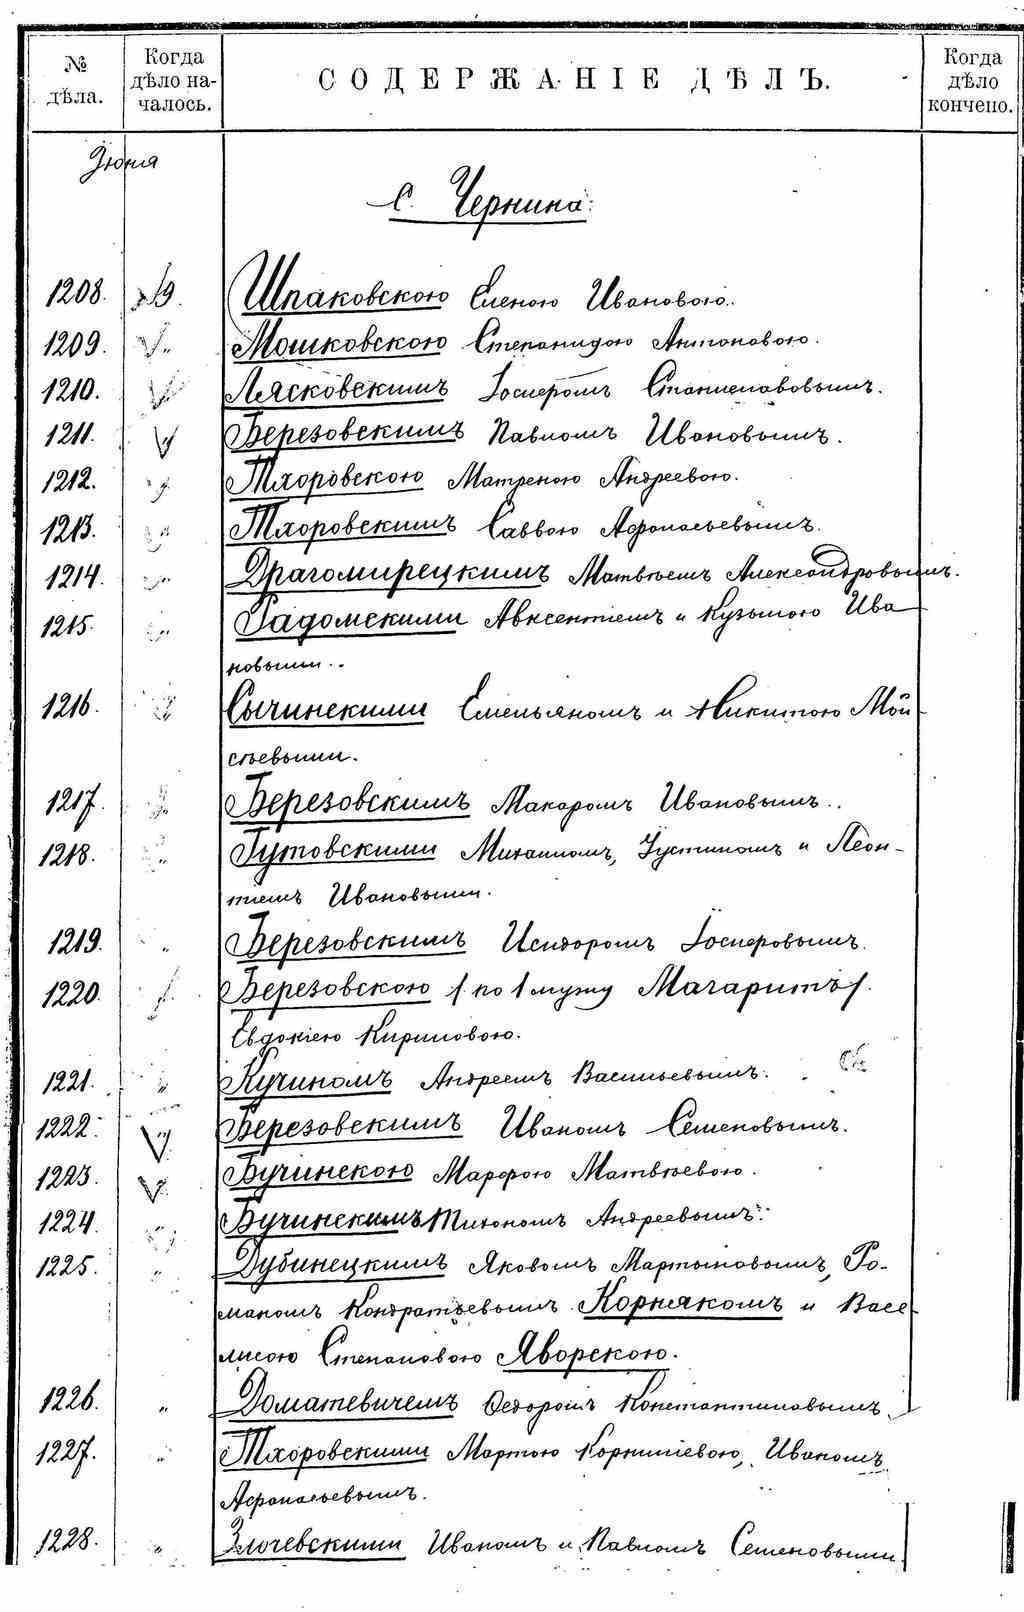 № дѣла.
Когда дѣло началось.
СОДЕРЖАНІЕ ДѢЛЪ.
Когда дѣло кончено.
Іюня
С. Чернина:
1208. 19. Шпаковскою Еленою Ивановою.
1209. „ Мошковскою Степанидою Антоновою.
1210. „ Лясковскимъ Іосифомъ Станиславовымъ.
1211. „ Березовскимъ Павломъ Ивановымъ.
1212. „ Тхоровскою Матреною Андреевою.
1213. „ Тхоровскимъ Саввою Афонасьевымъ.
1214. „ Драгомирецкимъ Матвѣемъ Александровымъ.
1215. „ Радомскими Авксентіемъ и Кузьмою Ива
новыми.
1216. „ Сычинскими Емельяномъ и Никитою Мои
сѣевыми.
1217. „ Березовскимъ Макаромъ Ивановымъ.
1218. „ Гутовскими Михаиломъ, Іустиномъ и Леон-
тіемъ Ивановыми.
1219. „ Березовскимъ Исидоромъ Іосифовымъ.
1220. „ Березовскою /по 1 мужу Магаритъ/.
Евдокіею Кириловою.
1221. „ Кучиномъ Андреемъ Васильевымъ.
1222. „ Березовскимъ Иваномъ Семеновымъ.
1223. „ Бучинскою Марфою Матвѣевою.
1224. „ Бучинскимъ Тихономъ Андреевымъ.
1225. „ Дубинецкимъ Яковомъ Мартыновымъ, Ро-
маномъ Кондратьевымъ Корнякомъ и Васс
лисою Степановою Яворскою.
1226. „ Доматевичемъ Ѳедоромъ Константиновымъ
1227. „ Тхоровскими Мартою Корниліевою, Иваномъ
Афонасьевымъ.
1228. „ Злочевскими Иваномъ и Павломъ Семеновыми.